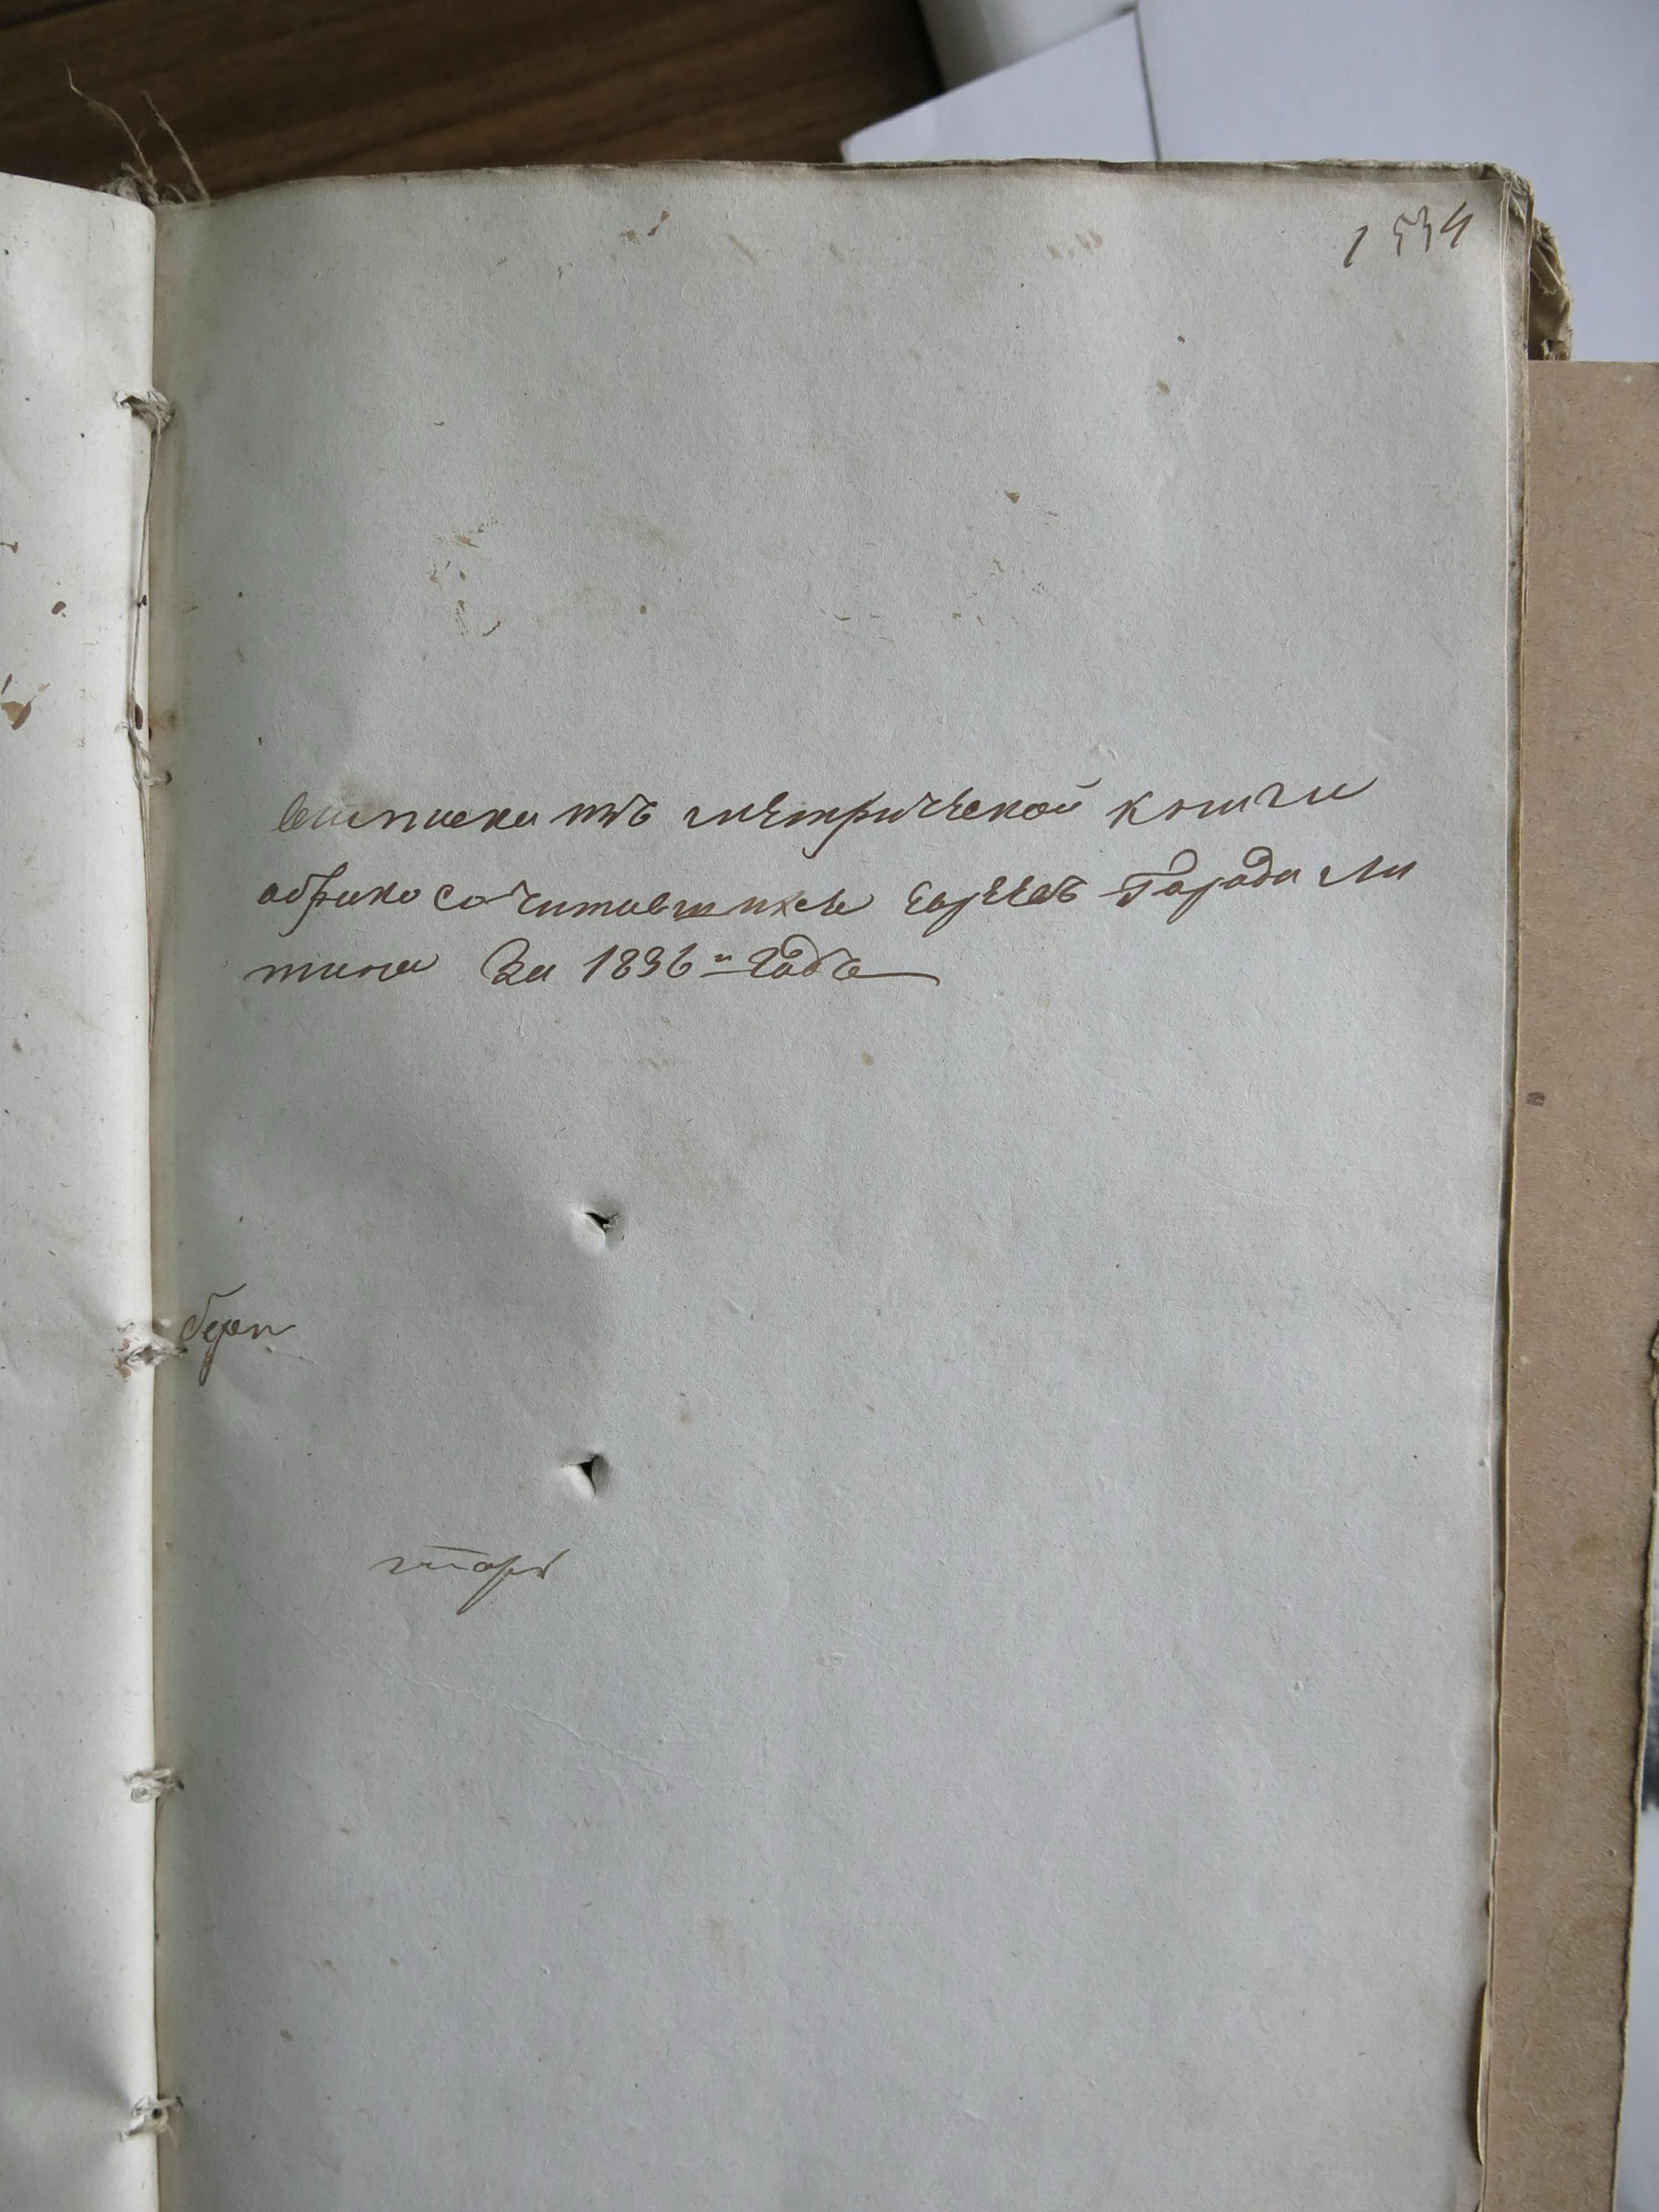 1 534
выписка изъ мѣтрической книги
обрако сочитавшихсе евреевъ Города Ли
тина За 1836 и годъ